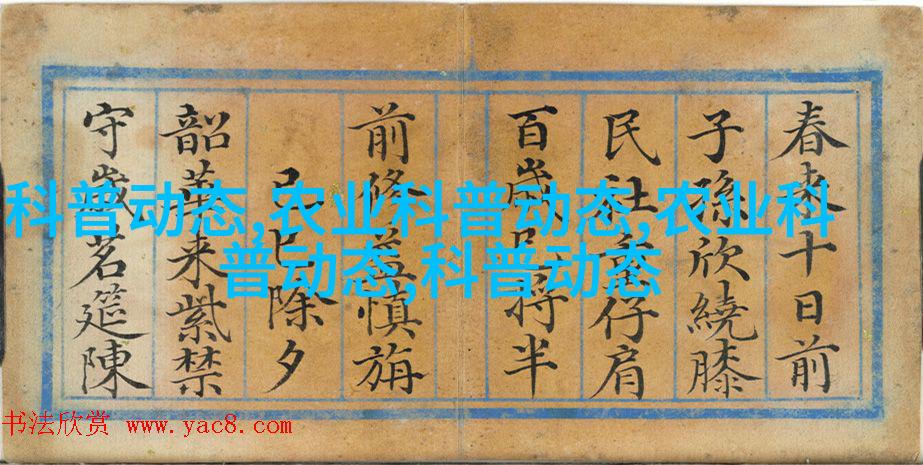 春来十日前
子孫欣繞膝
民社重仔肩
百歲将半
前修益慎旃
己巳除夕
韶華来紫禁
守歲茗筵陳
科普动态,农业科普动态,农业科
普动态,科普动态
书法欣赏 www.yac8.com